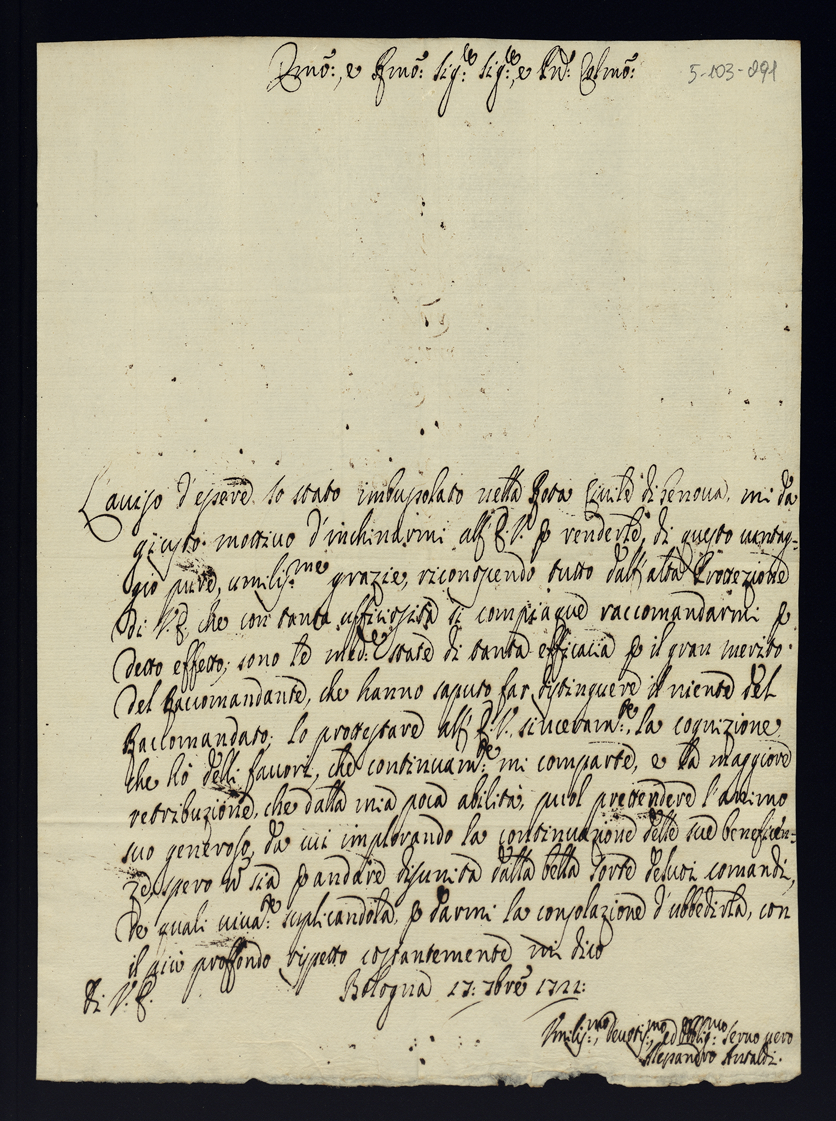 Emo:, e Rmo: Sig:re Sig:re, e Pne: Colmo:
5-103-891
L'auiso d'essere Io stato imbusolato nella Rota Ciuile di Genoua, mi dà
giusto mottiuo d'inchinarmi all'E.V. p renderle, di questo uantag-
gio pure, umilis:me grazie, riconoscendo tutto dall'alta Prottezione
di V.E. che con tanta ufficiosità si compiaque raccomandarmi p
detto effetto; sono le med:e state di tanta efficacia p il gran merito
del Raccomandante, che hanno saputo far distinguere il niente del
Raccomandato; Io prottestare all'E.V. sinceram:te, la cognizione
che hò delli fauori, che continuam:te mi comparte, e la maggiore
retribuzione, che dalla mia poca abilità, puol prettendere l'animo
suo generoso, da cui implorando la continuazione delle sue beneficen-
ze, spero n sia p andare disunita dalla bella sorte de suoi comandi,
de quali uiua:te suplicandola, p darmi la consolazione d'ubbedirla, con
il più proffondo rispetto costantemente mi dico
Di V.E.
Bologna 17: 7bre 1722:
Umilis:mo, Deuotis:mo, ed Obblig:mo Seruo uero
Alessandro Antaldi.